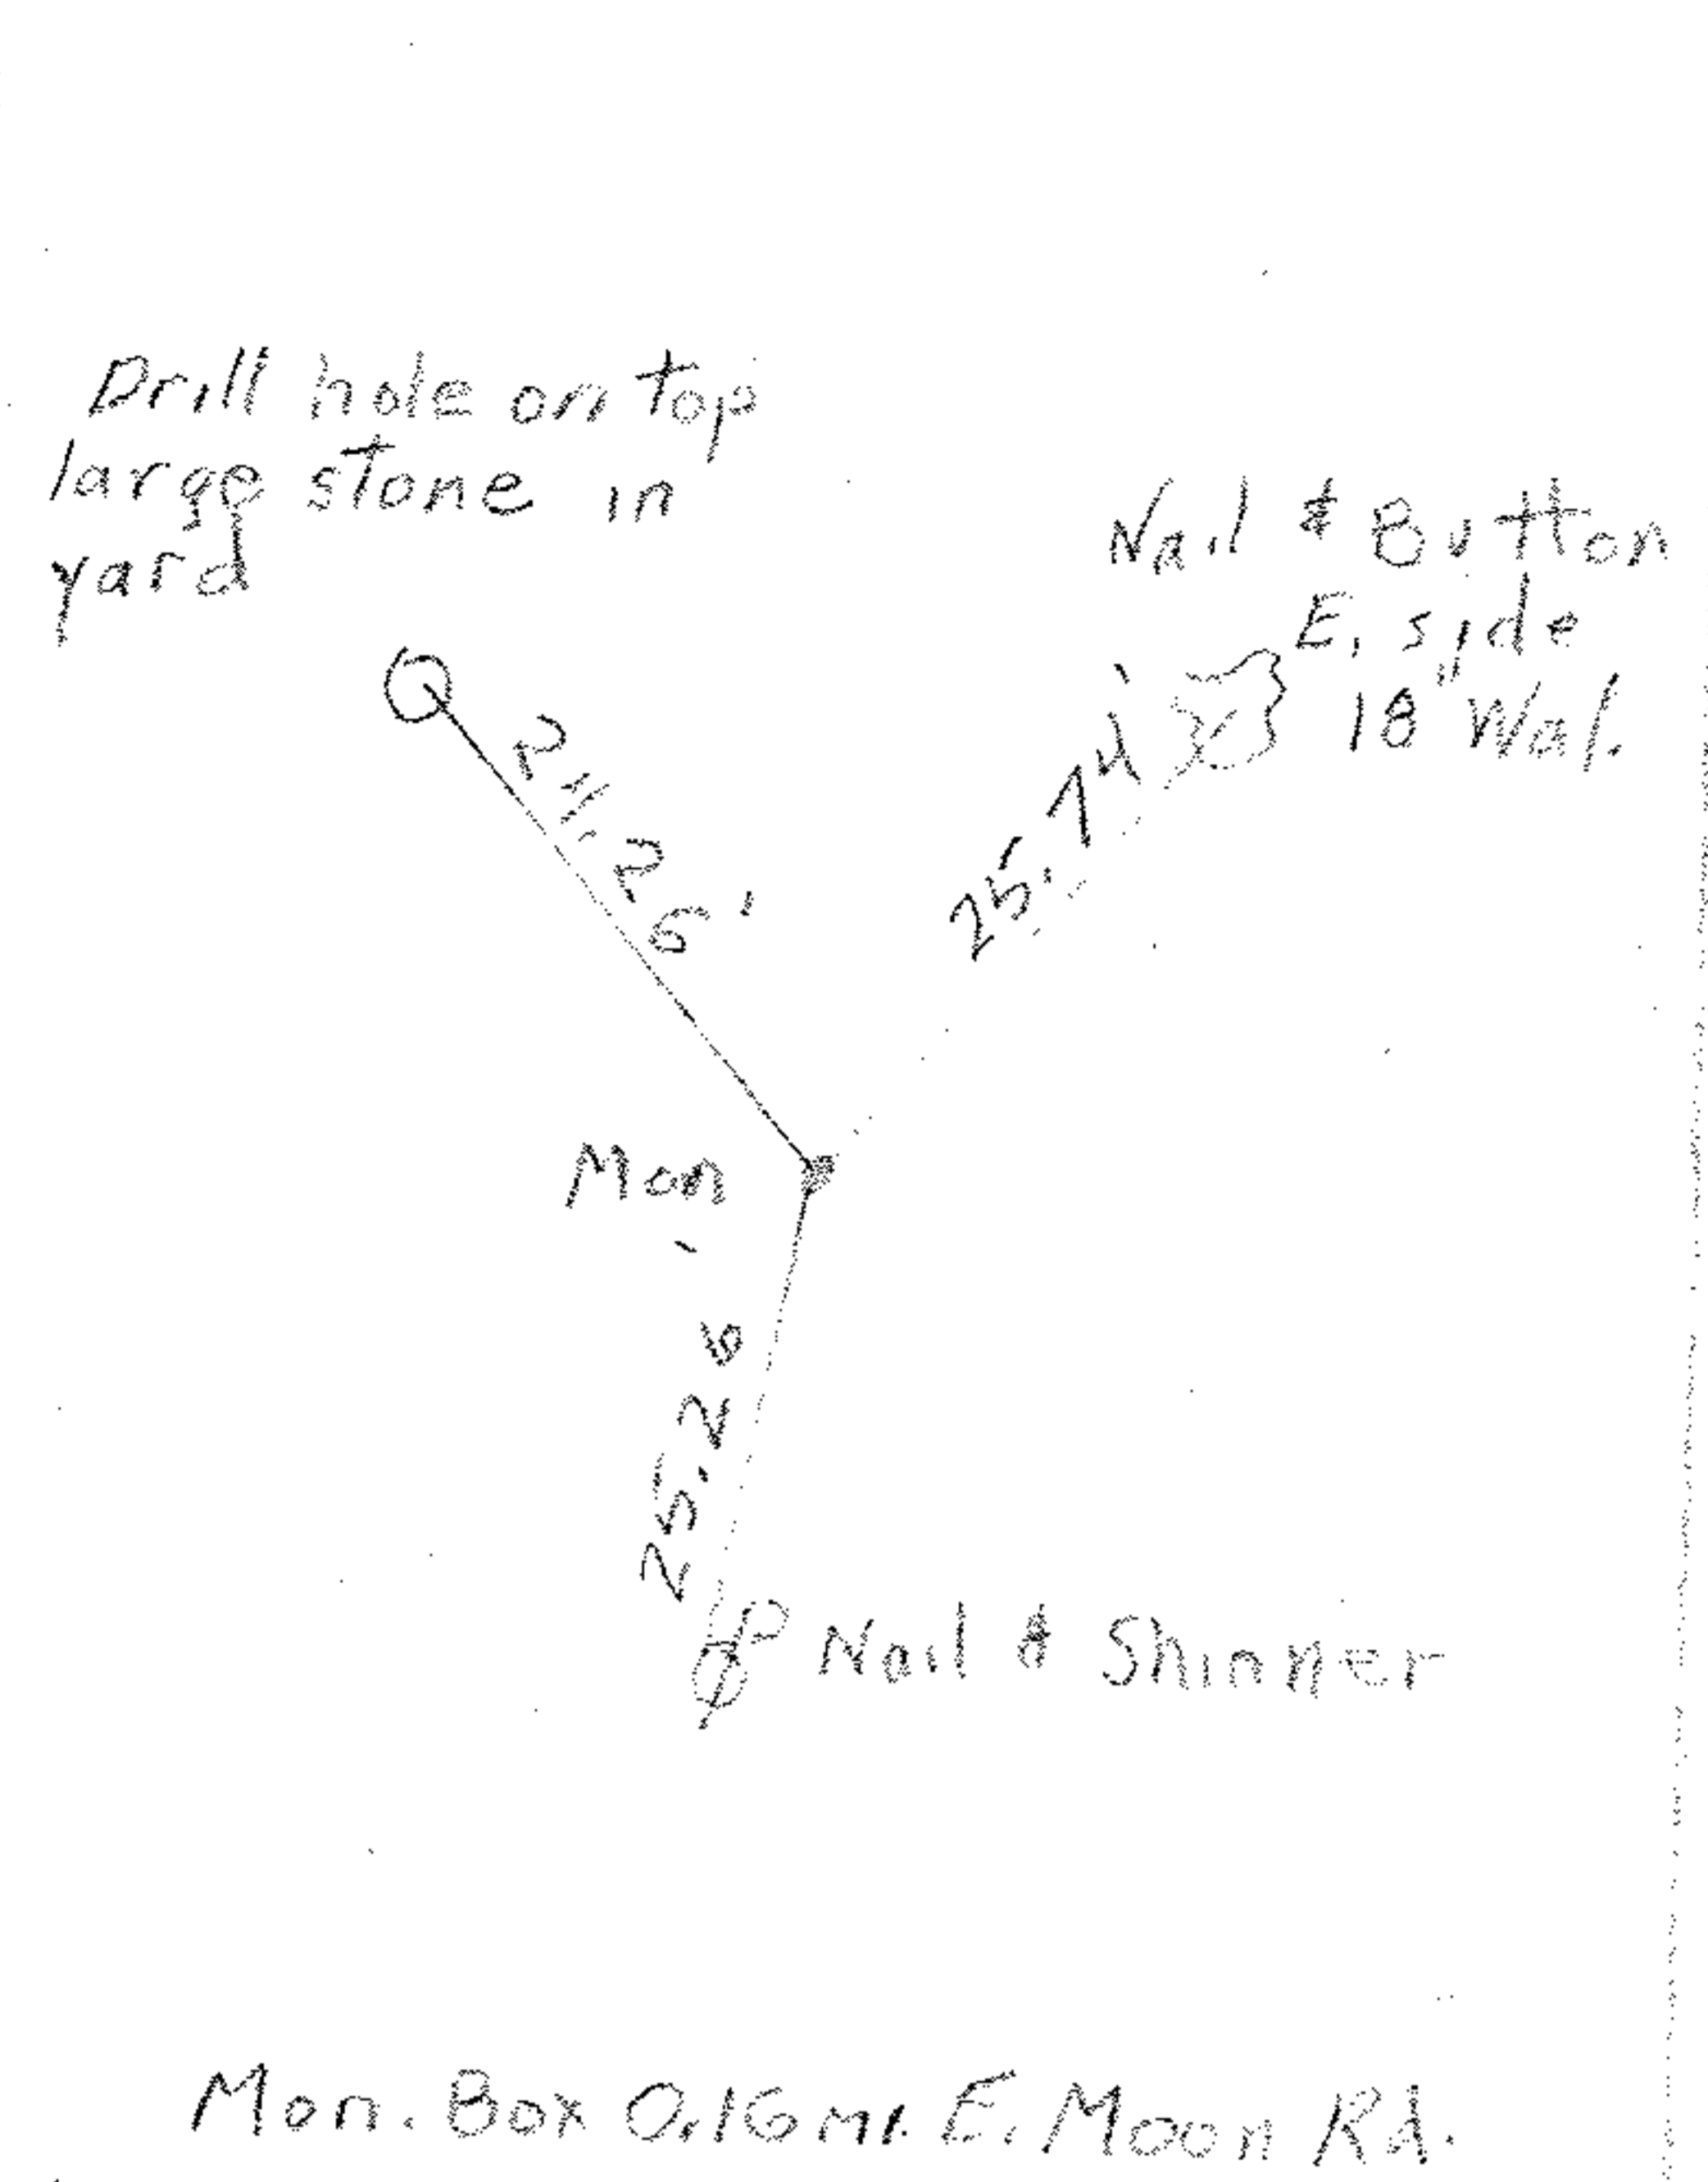 Drill hole on top
large stone in
yard
Nail & Button
E. side
18" Wal.
24.26'
25.74'
Mon
25.26'
PP Nail & Shinner
Mon. Box 0.16 mi. E. Moon Rd.